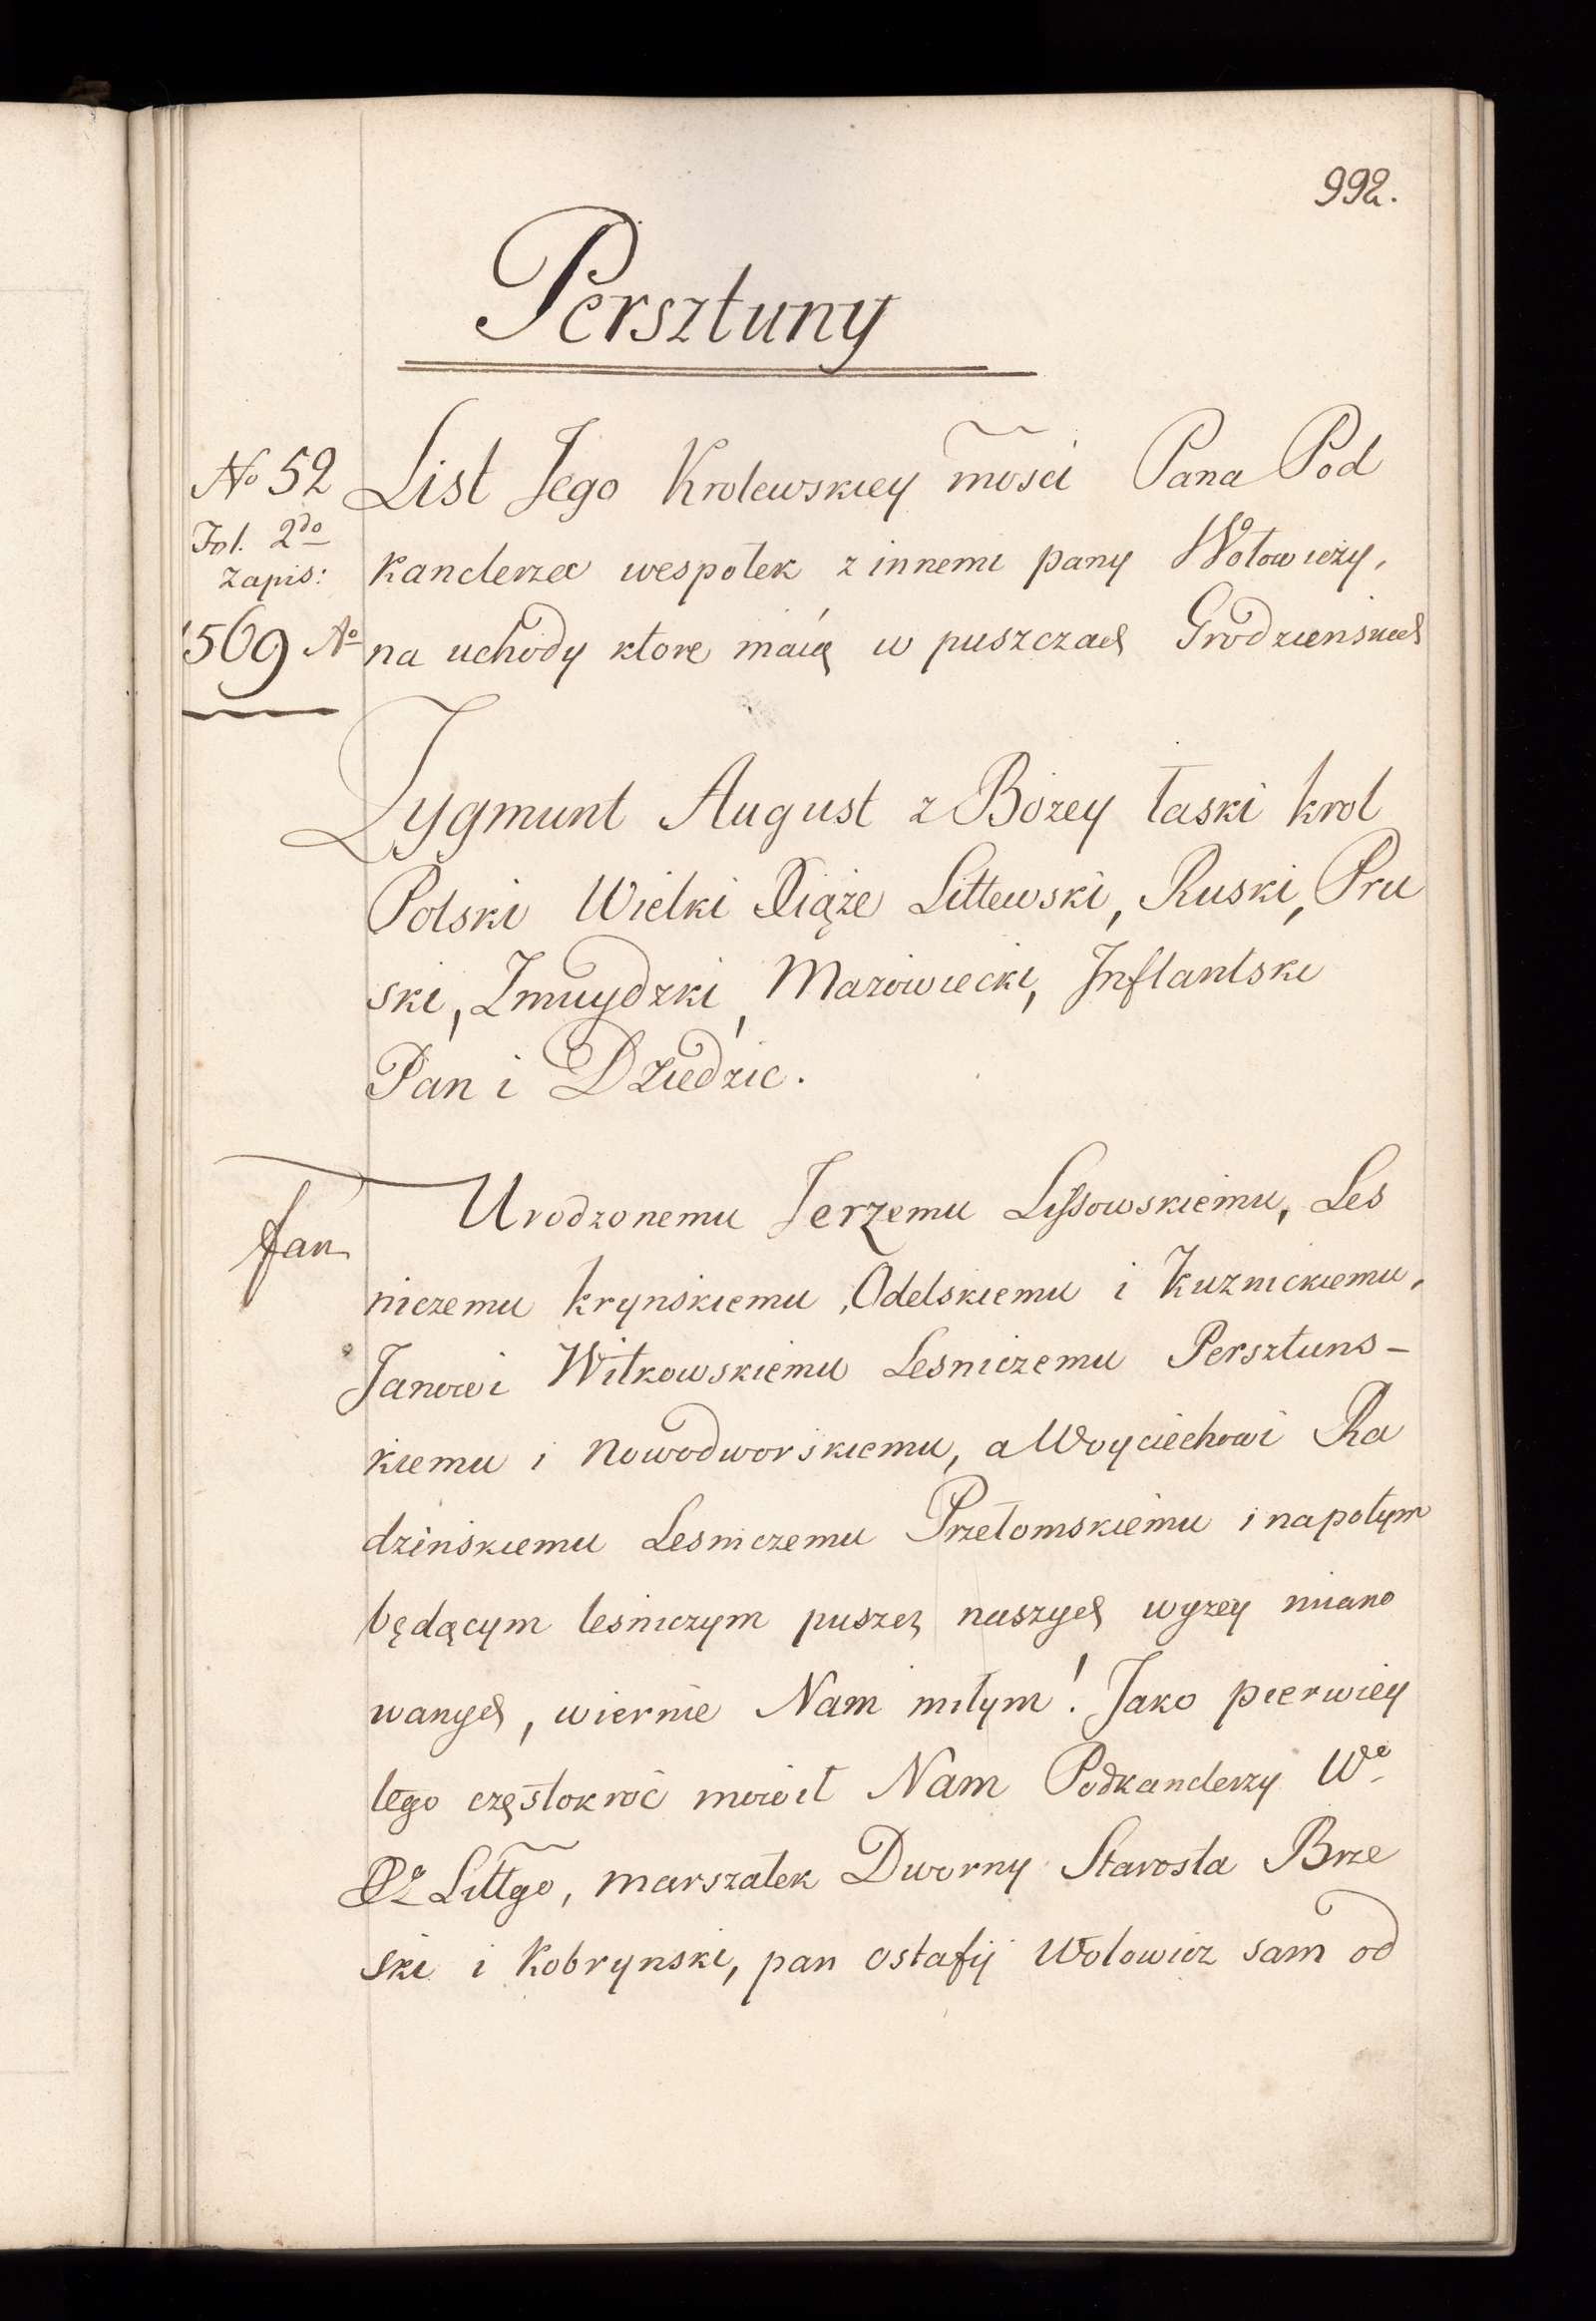 992.
Persztuny
No 52
Fol. 2do
zapis:
1569 Ao
List Jego Krolewskiey mosci Pana Pod
kanclerza wespołek z innemi pany Wołowiczy,
na uchody ktore maią w puszczach Grodzienskich
Zygmunt August z Bożey łaski krol
Polski Wielki Xiąże Littewski, Ruski, Pru
ski, Zmuydzki, Mazowiecki, Inflantski
Pan i Dziedzic.
Urodzonemu Jerzemu Lissowskiemu, Les
niczemu krynskiemu, Odelskiemu i Kuznickiemu,
Janowi Witkowskiemu Lesniczemu Persztuns-
kiemu i Nowodworskiemu, a Woyciechowi Ra
dzinskiemu Lesniczemu Przełomskiemu i napotym
będącym lesniczym puszcz naszych wyzey miano
wanych, wiernie Nam miłym! Jako pierwiey
tego częstokroć mowił Nam Podkanclerzy Wo
Xa Littgo, marszałek Dworny Starosta Brze
ski i Kobrynski, pan Ostafij Wołowicz sam od